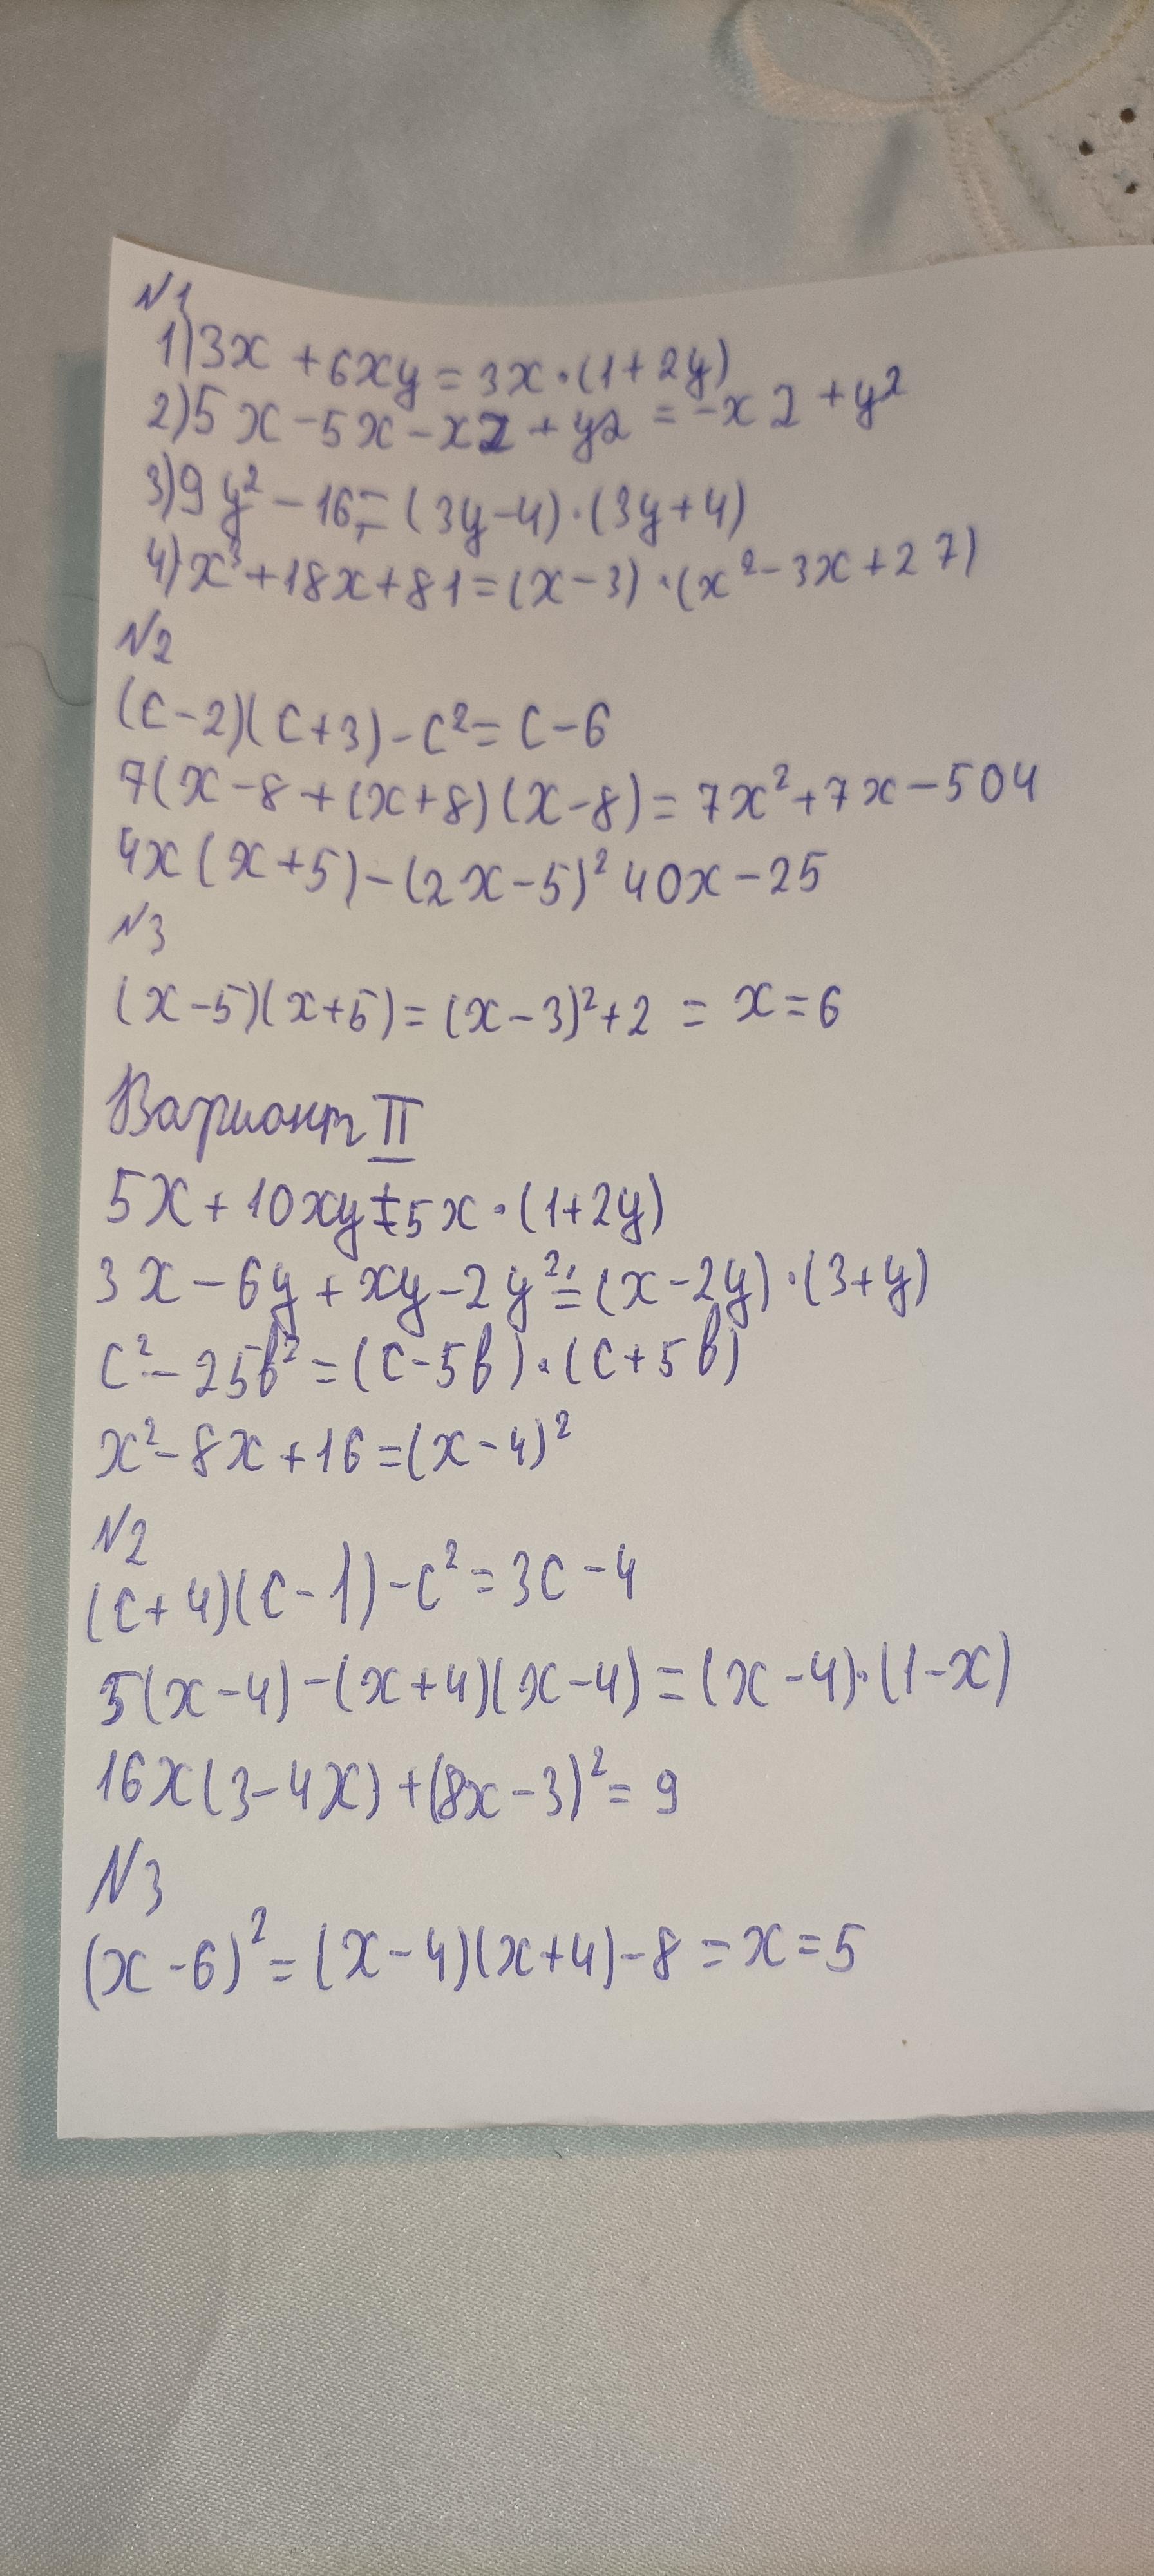 N1
1) 3x + 6xy = 3x · (1 + 2y)
2) 5x - 5x - xz + yz = -xz + y²
3) 9y² - 16 = (3y - 4) · (3y + 4)
4) x³ + 18x + 81 = (x - 3) · (x² - 3x + 27)
N2
(c - 2)(c + 3) - c² = c - 6
7(x - 8 + (x + 8)(x - 8) = 7x² + 7x - 504
4x(x + 5) - (2x - 5)² 40x - 25
N3
(x - 5)(x + 5) = (x - 3)² + 2 = x = 6
Вариант II
5x + 10xy = 5x · (1 + 2y)
3x - 6y + xy - 2y² = (x - 2y) · (3 + y)
c² - 25b² = (c - 5b) · (c + 5b)
x² - 8x + 16 = (x - 4)²
N2
(c + 4)(c - 1) - c² = 3c - 4
5(x - 4) - (x + 4)(x - 4) = (x - 4) · (1 - x)
16x(3 - 4x) + (8x - 3)² = 9
N3
(x - 6)² = (x - 4)(x + 4) - 8 = x = 5